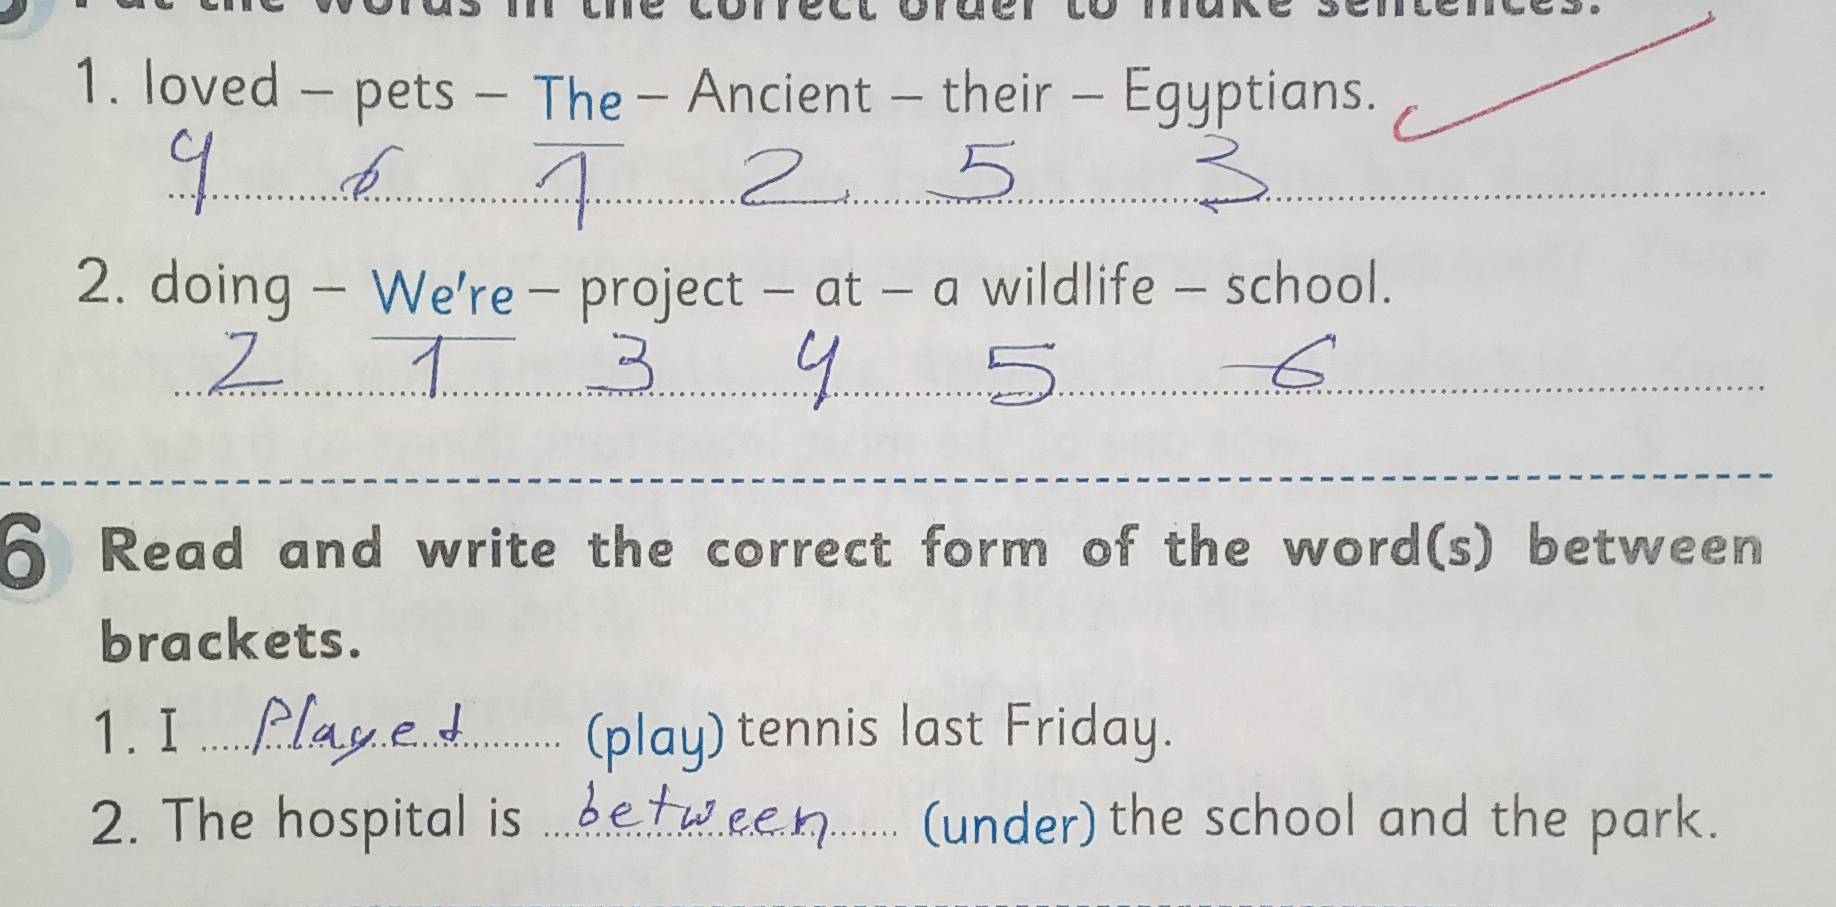 Put the words in the correct order to make sentences.
1. loved – pets – The – Ancient – their – Egyptians.
4 6 1 2 5 3
2. doing – We're – project – at – a wildlife – school.
2 1 3 4 5 6
6 Read and write the correct form of the word(s) between
brackets.
1. I Played (play) tennis last Friday.
2. The hospital is between (under) the school and the park.